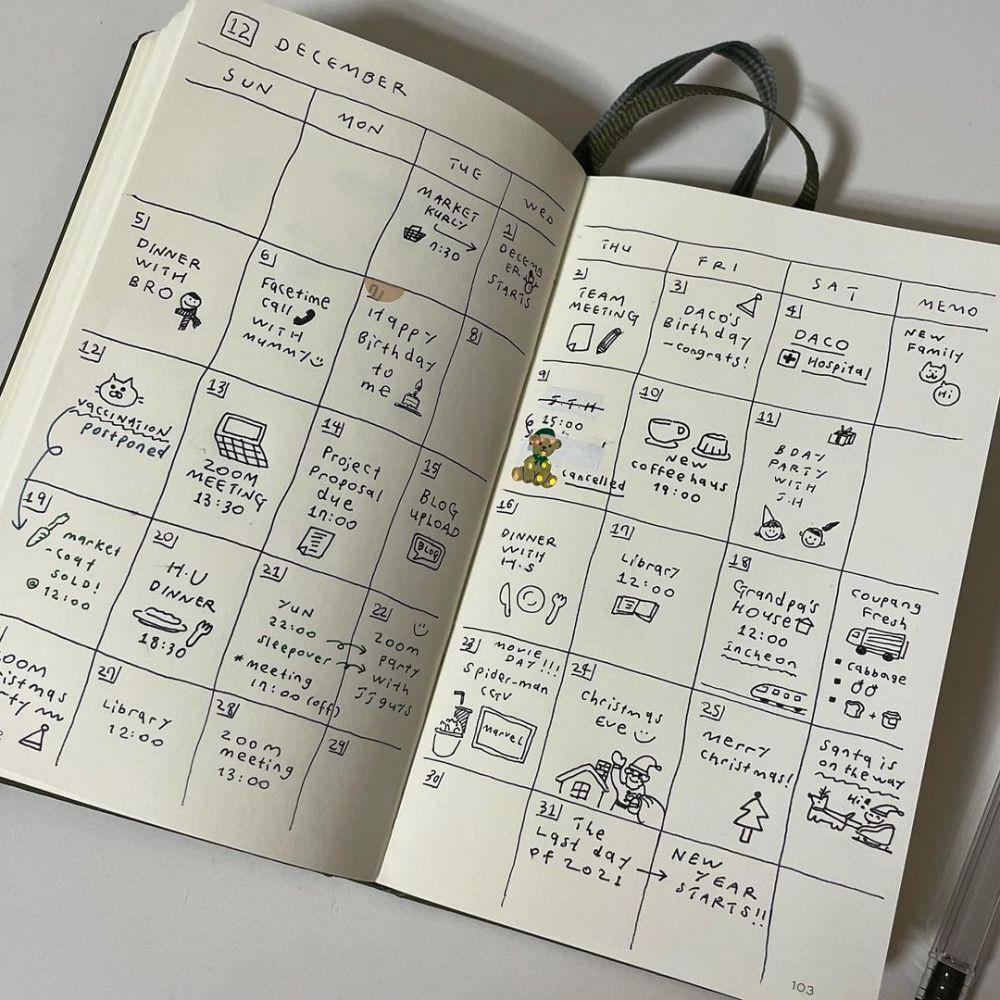 12 DECEMBER
SUN
MON
TUE
WED
THU
FRI
SAT
MEMO
MARKET
KURLY
7:30
1
DECEMB
ER
STARTS
2
TEAM
MEETING
3
DACO'S
Birthday
-congrats!
4
DACO
Hospital
NEW
Family
Hi
5
DINNER
WITH
BRO
6
Facetime
call
WITH
mummy
7
Happy
Birthday
to
me
8
9
15:00
cancelled
10
NEW
coffeehaus
19:00
11
BDAY
PARTY
WITH
J.H
12
VACCINATION
postponed
13
ZOOM
MEETING
13:30
14
Project
Proposal
due
17:00
15
BLOG
UPLOAD
BLOG
16
DINNER
WITH
H.S
17
Library
12:00
18
Grandpa's
HOUSE
12:00
incheon
COUPANG
Fresh
cabbage
+
19
market
-coat
SOLD!
@ 12:00
20
H.U
DINNER
18:30
21
YUN
22:00
sleepover
* meeting
17:00 (off)
22
ZOOM
party
with
JJ guys
23
MOVIE
DAY!!!
Spider-man
CGV
marvel
24
Christmas
Eve
25
Merry
christmas!
Santa is
on the way
Hi
27
Library
12:00
28
zoom
meeting
13:00
29
30
31
The
Last day
of 2021
NEW
YEAR
STARTS!!
103